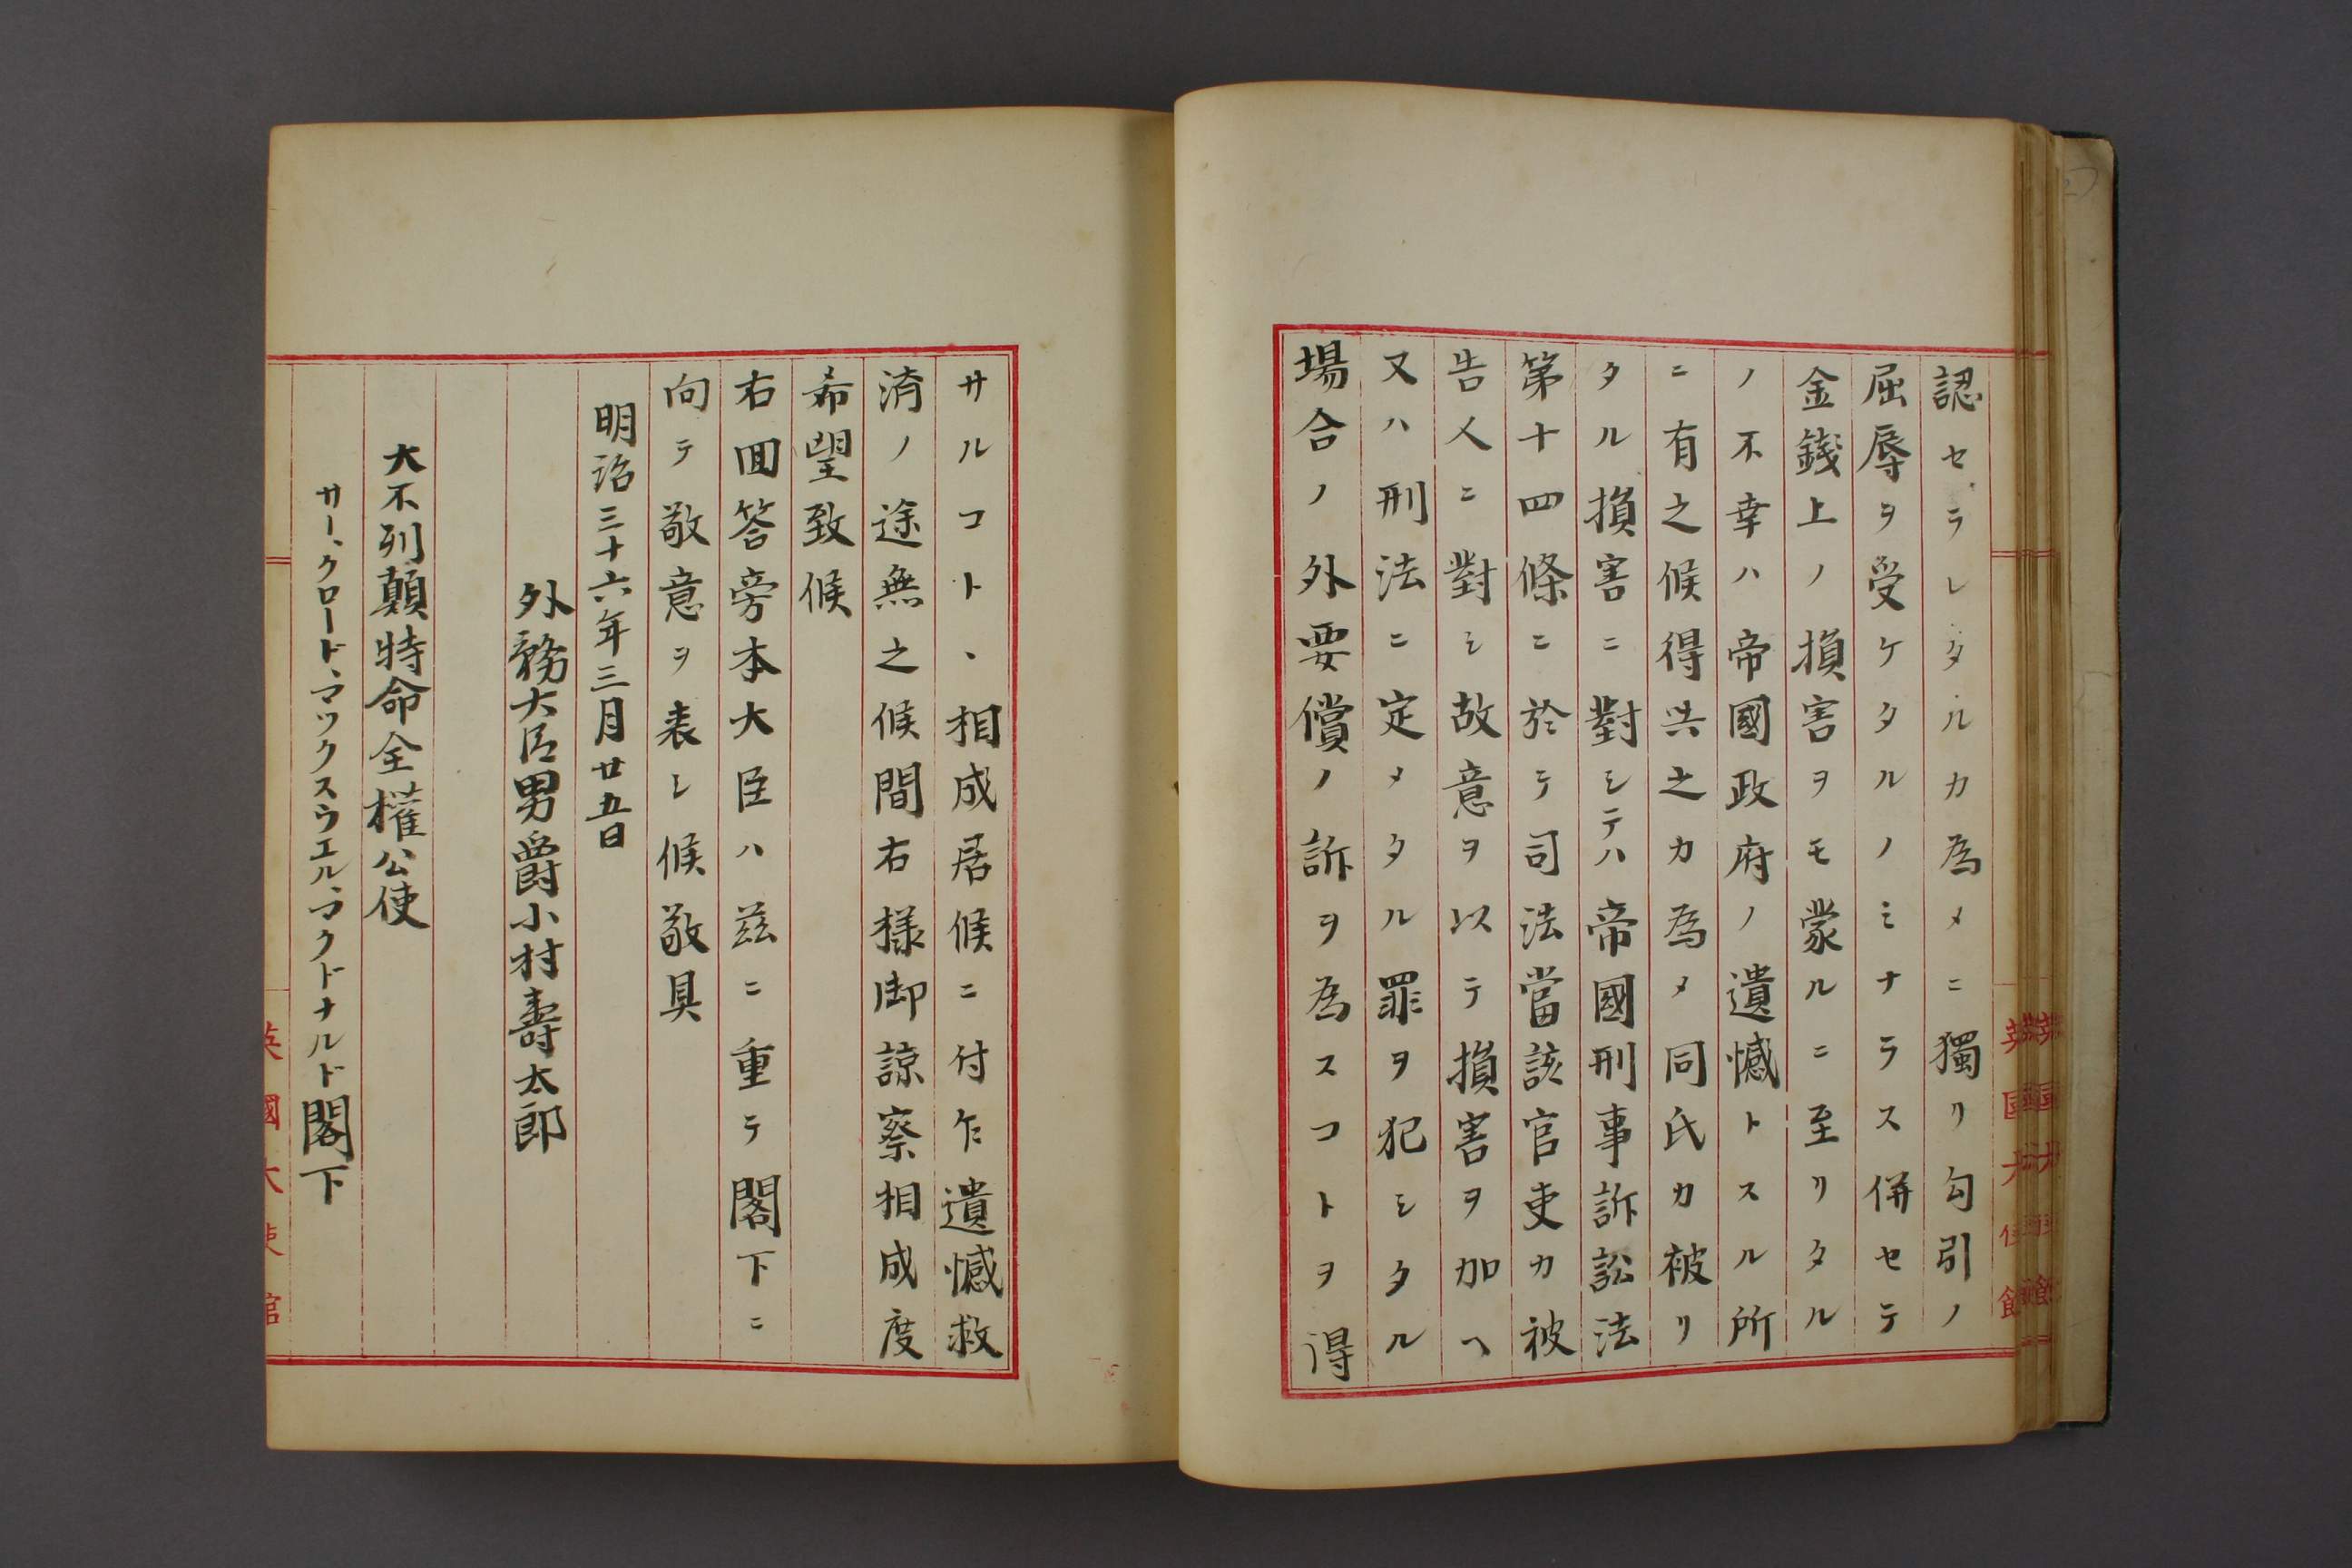 認セラレタルカ為メニ獨リ勾引ノ
屈辱ヲ受ケタルノミナラス併セテ
金錢上ノ損害ヲモ蒙ルニ至リタル
ノ不幸ハ帝國政府ノ遺憾トスル所
ニ有之候得共之カ為メ同氏カ被リ
タル損害ニ對シテハ帝國刑事訴訟法
第十四條ニ於テ司法當該官吏カ被
告人ニ對シ故意ヲ以テ損害ヲ加ヘ
又ハ刑法ニ定メタル罪ヲ犯シタル
場合ノ外要償ノ訴ヲ為スコトヲ得
サルコト、相成居候ニ付乍遺憾救
濟ノ途無之候間右樣御諒察相成度
希望致候
右回答旁本大臣ハ茲ニ重テ閣下ニ
向テ敬意ヲ表シ候敬具
明治三十六年三月廿五日
外務大臣男爵小村壽太郎
大不列顛特命全權公使
サー、クロード、マックスウエル、マクドナルド閣下
英國大使館